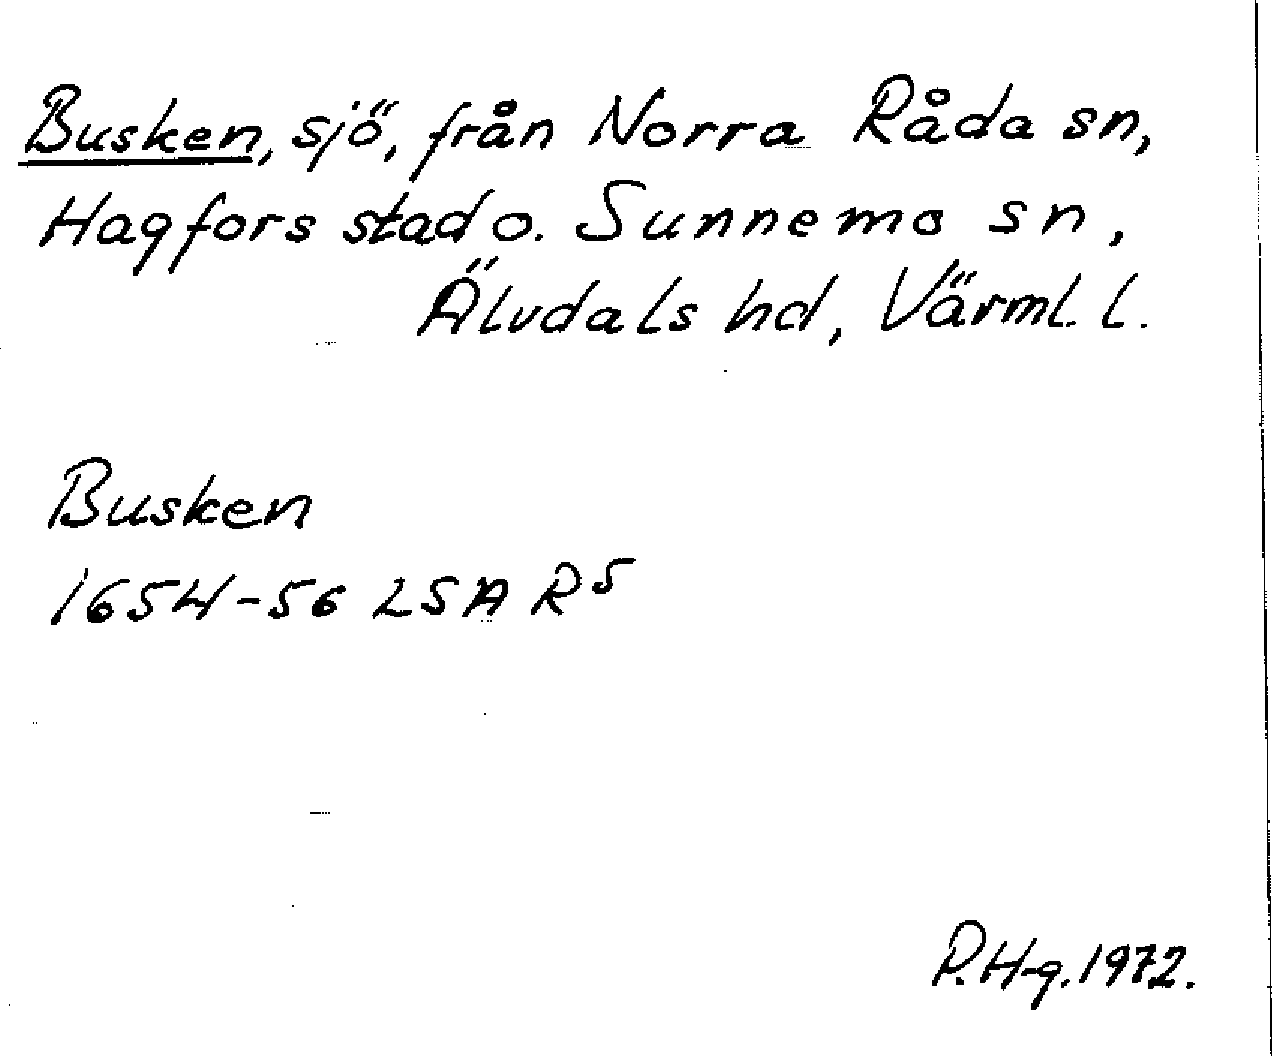 Busken, sjö, från Norra Råda sn,
Hagfors stad o. Sunnemo sn,
Älvdals hd, Värml. l.
Busken
1654-56 LSA R5
P.H-g. 1972.